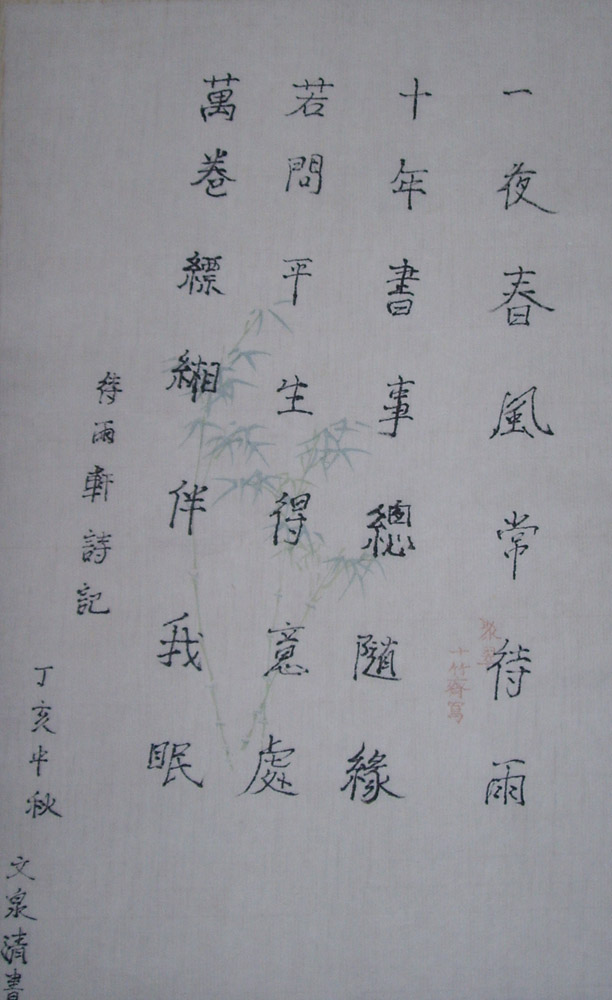 一夜春風常待雨
十年書事總隨緣
若問平生得意處
萬卷縹緗伴我眠
待雨軒詩記
丁亥中秋
文泉清書
十竹齋寫